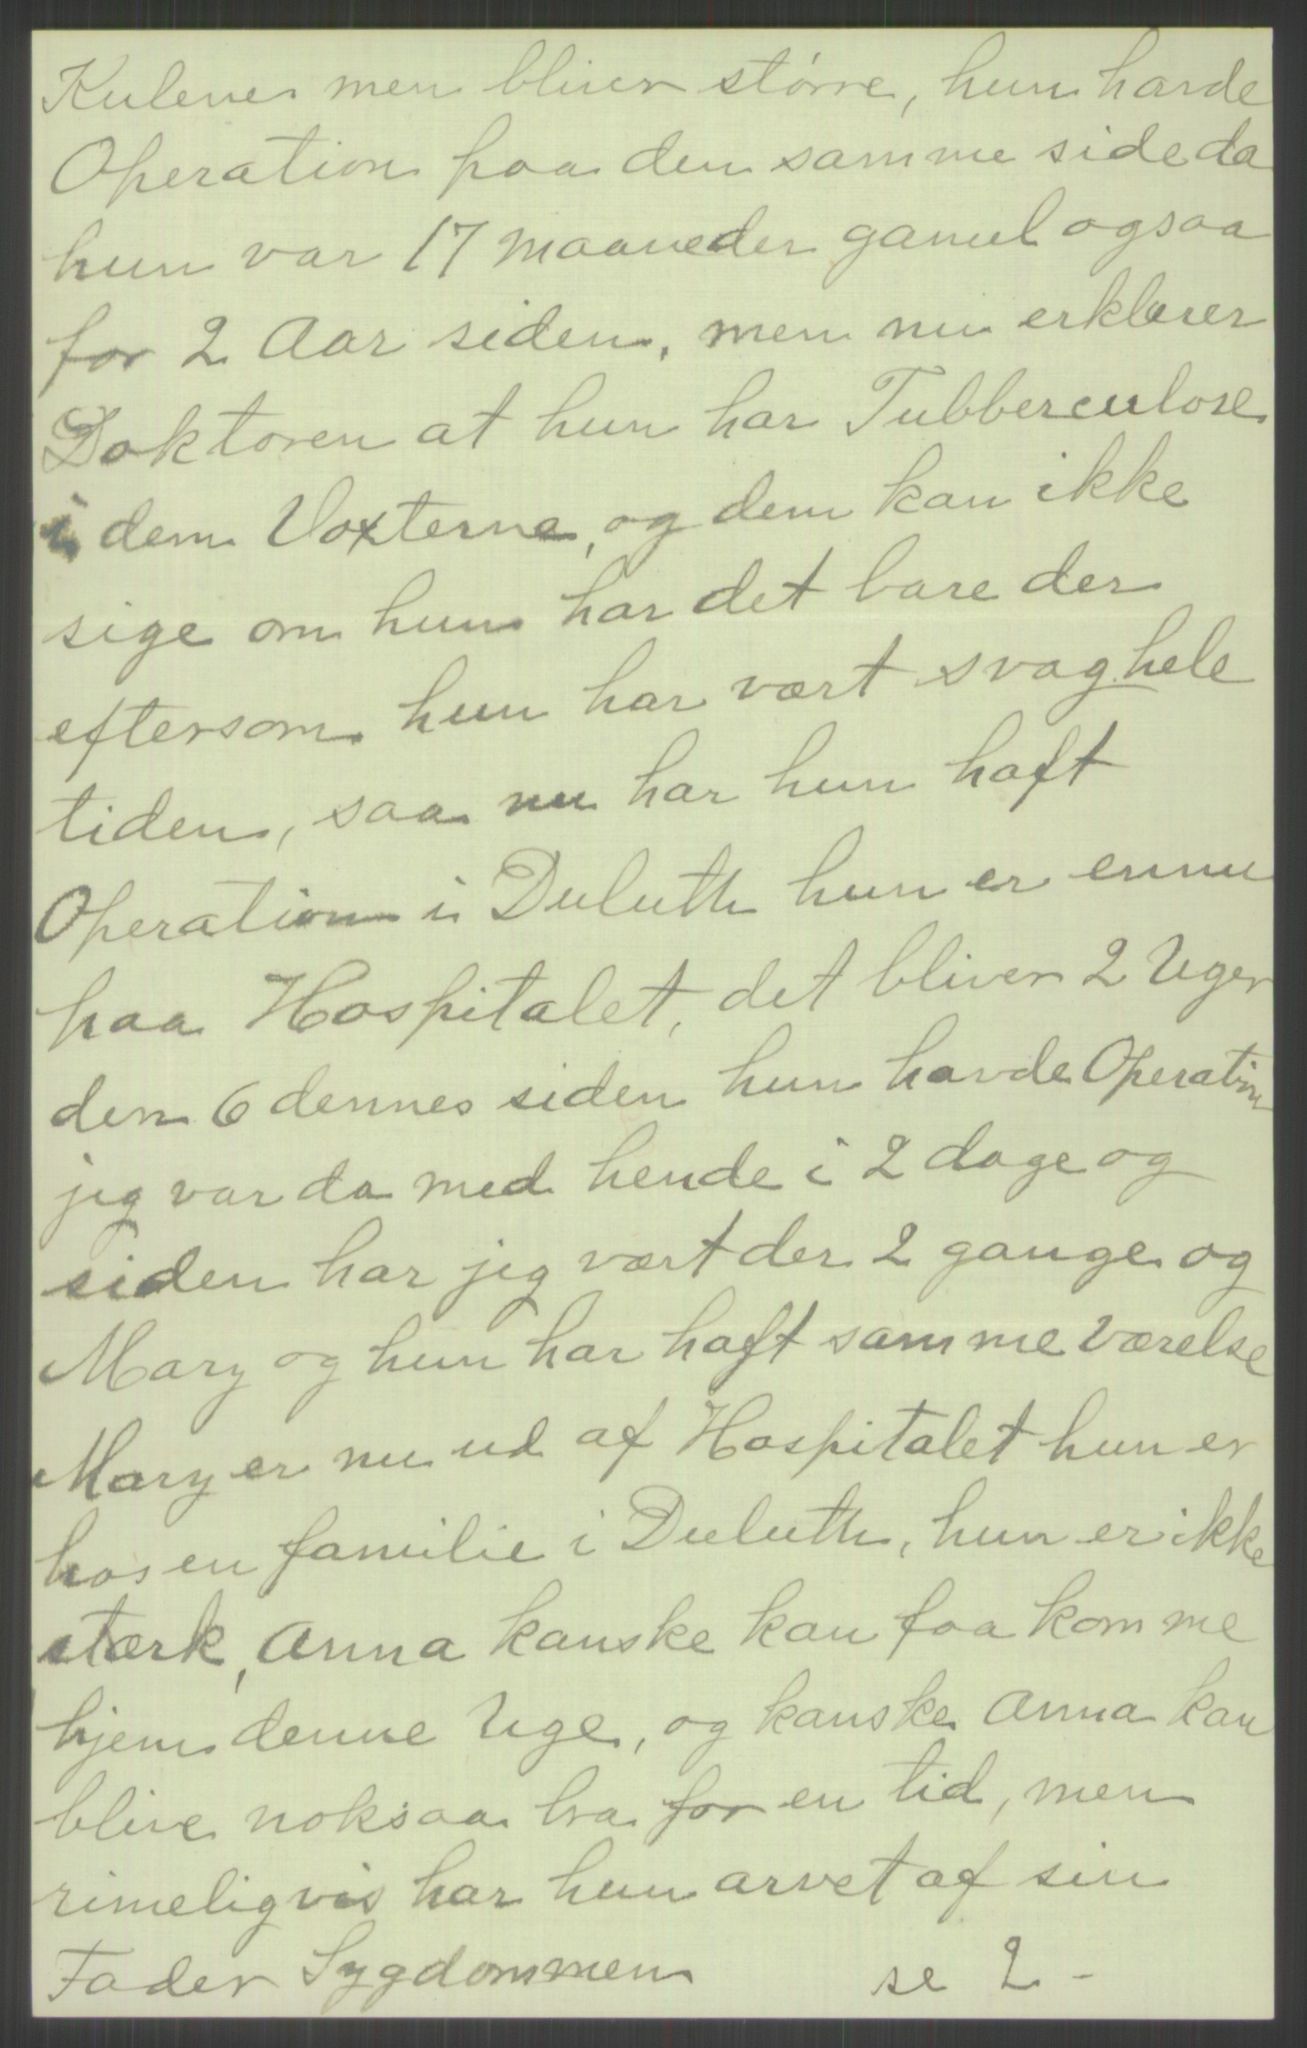 Kulene men bliver större, hun havde
Operation paa den samme side da
hun var 17 maaneder gamel ogsaa
for 2 Aar siden, men nu erklærer
Doktoren at hun har Tubberculose
i dem Voxterne, og dem kan ikke
sige om hun har det bare der
eftersom hun har vært svag hele
tiden, saa nu har hun haft
Operation i Duluth hun er ennu
paa Hospitalet, det bliver 2 Uger
den 6 dennes siden hun havde Operation
jeg var da med hende i 2 dage og
siden har jeg vært der 2 gange og
Mary og hun har haft samme Værelse
Mary er nu ud af Hospitalet hun er
hos en familie i Duluth, hun er ikke
stærk, Anna kanske kan faa komme
hjem denne Uge, og kanske Anna kan
blive noksaa bra for en tid, men
rimeligvis har hun arvet af sin
Fader Sygdommen se 2 -